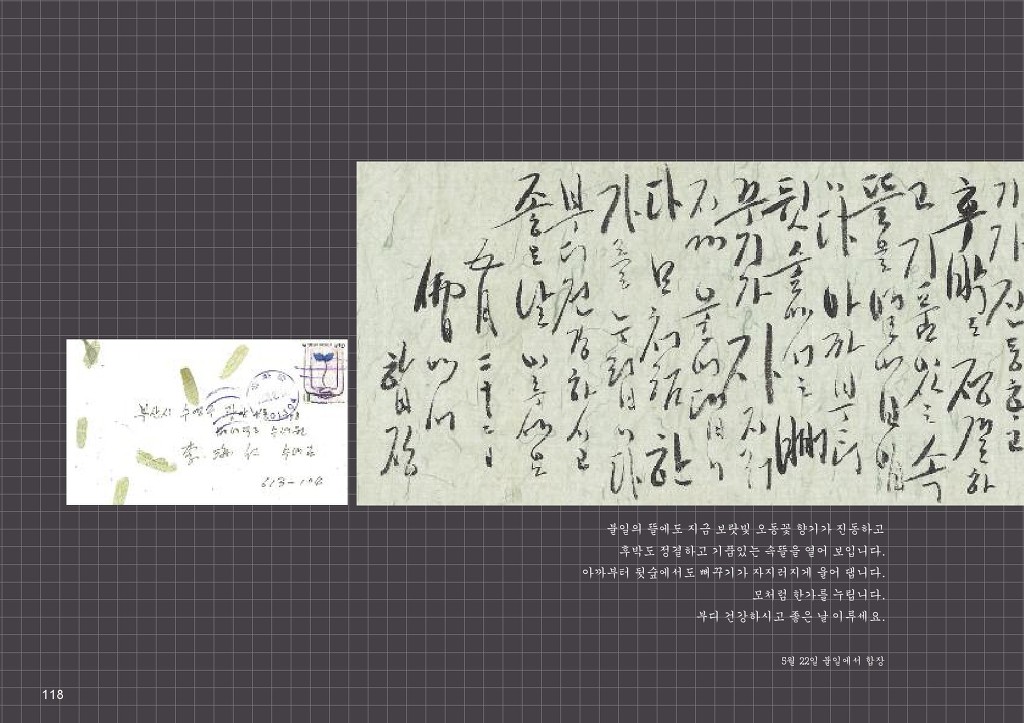 부산시 수영구 광안
베네딕도 수녀원
李 海仁 수녀님
613-104
기가 진동하고
후박도 정결하
고 기품 있는 속
뜰을 열어 보입
니다 아까부터
뒷숲에서는 뻐
꾸기가 자지러
지게 울어댑니
다 모처럼 한
가를 누립니다
부디 건강하시고
좋은 날 이루세요
五月 二十二日
佛日에서
합장
불일의 뜰에도 지금 보랏빛 오동꽃 향기가 진동하고
후박도 정결하고 기품있는 속뜰을 열어 보입니다.
아까부터 뒷숲에서도 뻐꾸기가 자지러지게 울어 댑니다.
모처럼 한가를 누립니다.
부디 건강하시고 좋은 날 이루세요.
5월 22일 불일에서 합장
118